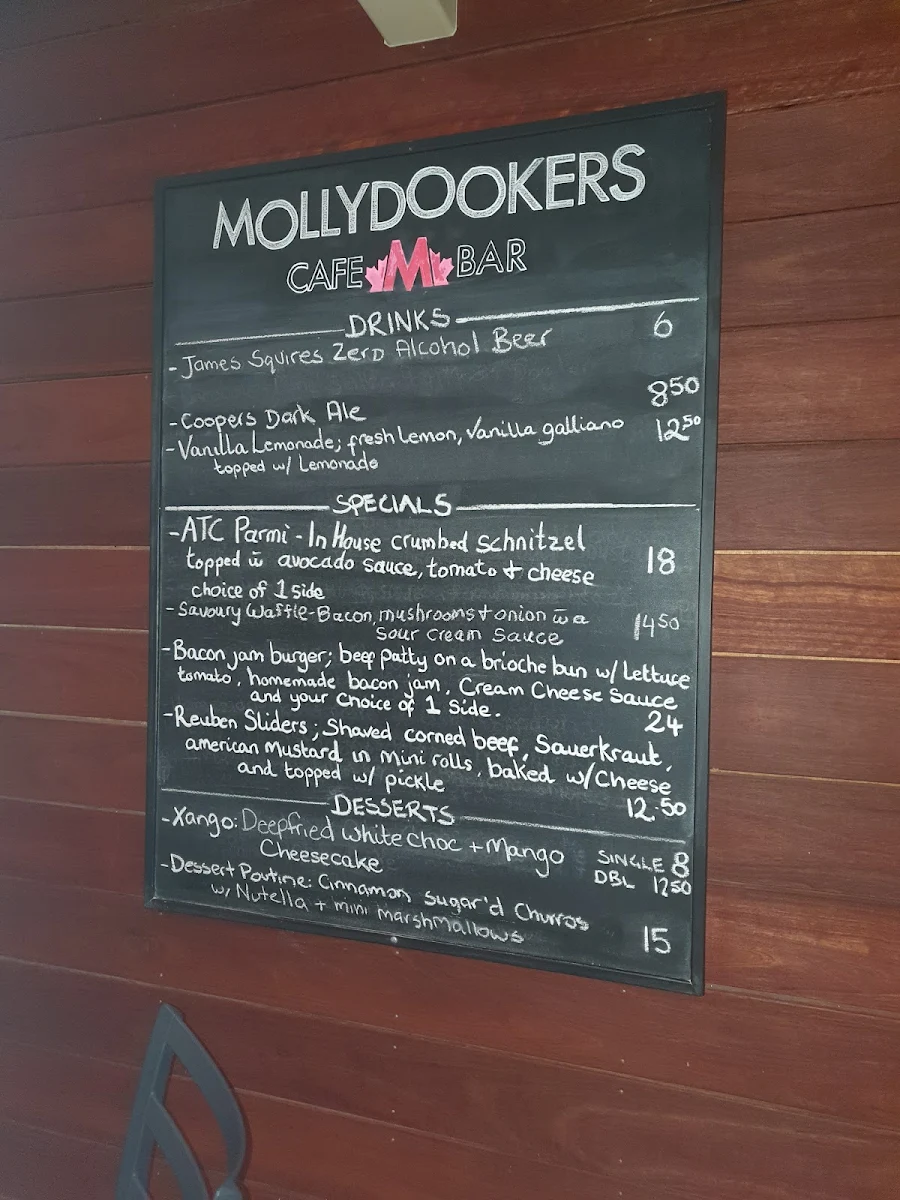 MOLLYDOOKERS
CAFE M BAR
DRINKS
- James Squires Zero Alcohol Beer 6
- Coopers Dark Ale 850
- Vanilla Lemonade; fresh Lemon, Vanilla galliano 1250
topped w/ Lemonade
SPECIALS
- ATC Parmi - In House crumbed Schnitzel
topped w̄ avocado sauce, tomato + cheese 18
choice of 1 side
- Savoury Waffle - Bacon, mushrooms + onion w̄ a 1450
Sour cream Sauce
- Bacon jam burger; beef patty on a brioche bun w/ Lettuce
tomato, homemade bacon jam, Cream Cheese Sauce
and your choice of 1 Side. 24
- Reuben Sliders; Shaved corned beef, Sauerkraut,
american Mustard in mini rolls, baked w/ Cheese
and topped w/ pickle 12.50
DESSERTS
- Xango: Deepfried white choc + Mango SINGLE 8
Cheesecake DBL 1250
- Dessert Poutine: Cinnamon Sugar'd Churros
w/ Nutella + mini marshmallows 15